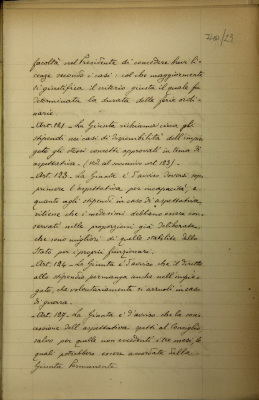 facoltà nel Presidente di concedere brevi li-
cenze secondo i casi: col che maggiormente
si giustifica il criterio giusta il quale fu
determinata la durata delle ferie ordi-
narie.
- Art. 121 - La Giunta richiama circa gli
stipendi nei casi di disponibilità dell'impie-
gato gli stessi concetti approvati in tema di
aspettativa. (
- Art. 123 - La Giunta è d'avviso doversi sop-
primere l'aspettativa per incapacità, e
quanto agli stipendi in caso di aspettativa
ritiene che i medesimi debbano essere con-
servati nelle proporzioni già deliberate,
che sono migliori di quelle stabilite dallo
Stato per i propri funzionari.
- Art. 124 - La Giunta è d'avviso che il diritto
allo stipendio permanga anche nell'impie-
gato, che volontariamente si arruoli in caso
di guerra.
- Art. 127 - La Giunta è d'avviso che la con-
cessione dell'aspettativa spetti al Consiglio
salvo per quelle non eccedenti i tre mesi, le
quali potrebbero essere accordate dalla
Giunta Permanente.